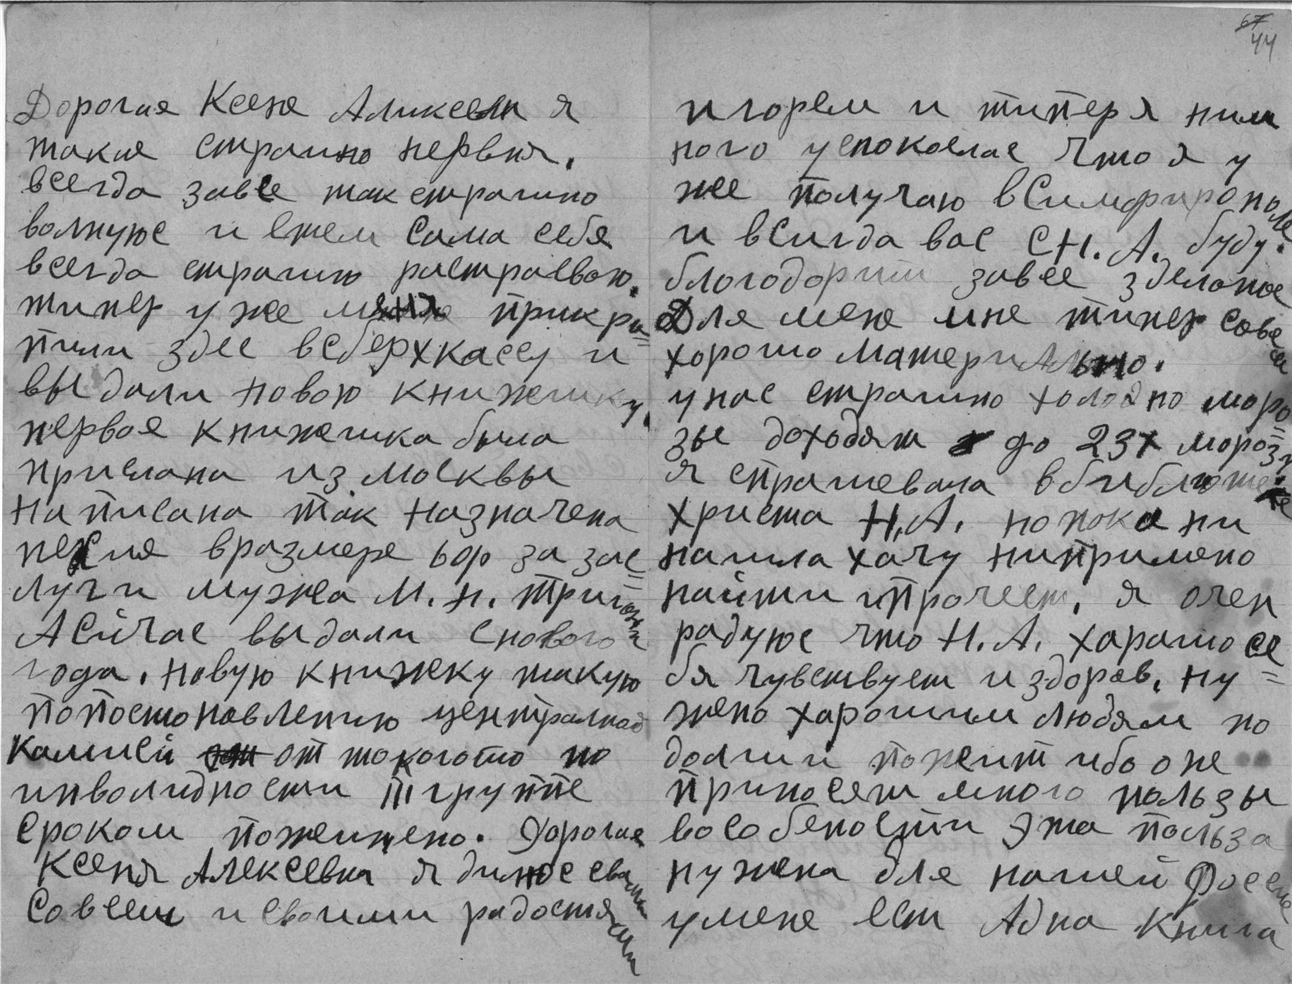 67
44
Дорогая Ксеня Аликсевн я
такая страшно нервня.
всегда завсе так страшно
волнуюс и етем сама себя
всегда страшно растроевою.
типер уже меня прикра=
пили здес всберхкассу и
выдали новою книжешку.
первоя книжешка была
прислана из москвы
написана так назначена
песия вразмере 60р за зас=
луги мужа М. Н. тригони
А сийчас выдали снового
года. новую книжку такую
попостоновлению централной
камисй от такогото по
инволидности III группе
сроком пожизнено. Дорогая
Ксеня Алексевна я дилюсс свами
Со всеми и своими радостями
и горем и типер я ним
ного успокоелас что я у
же получаю всимфирополе
и всигда вас с Н. А. буду.
благодорит завсе зделоное
для мене мне типер совсем
хорошо материАльно.
у нас страшно холодно моро=
зы доходят до 23х морозу
я спрашевала вбиблиотеке
христа Н. А. но пока ни
нашла хачу нипримено
найти ипрочест. я очен
радуюс что Н. А. харашо се
бя чувствует и здоров. ну=
жено харошим людям по
долши пожит ибо оне
приносят много пользы
вособености эта польза
нужена для нашей Россеи
у мене ест Адна книга